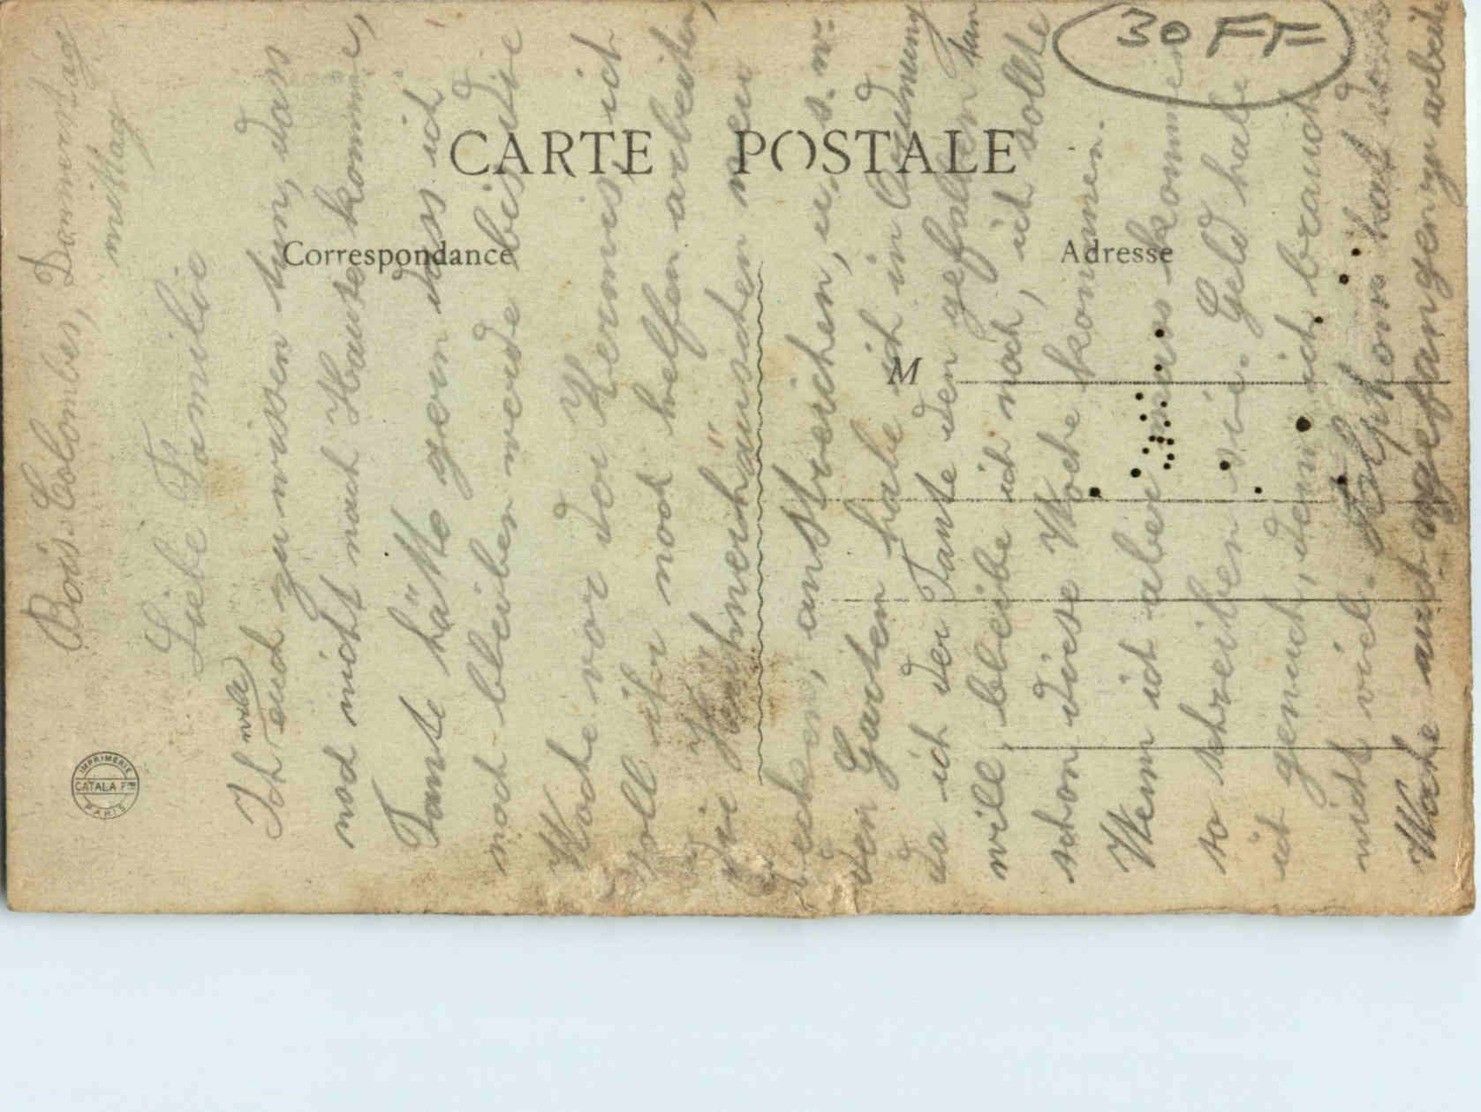 CARTE POSTALE
Correspondance
Adresse
M
30 FF
IMPRIMERIE
CATALA Fres
PARIS
Bois-Colombes, Donnerstag
mittag
Liebe Familie
Ich will euch zu wissen tun, dass
noch nicht nach Hause komme,
Tante hätte gern dass ich
noch bleiben werde bis die
Woche vor der Kermis, ich
soll ihr noch helfen arbeiten,
die Hühnerhäuschen neu
anstreichen, u. s. w.
den Garten habe ich in Ordnung
da ich der Tante den gefallen tun
will bleibe ich noch, ich sollte
schon diese Woche kommen.
Wenn ich aber muss kommen
so schreiben sie. Geld habe
ich genuch, denn ich brauch
nicht viel. Alphons hat
Woche auch angefangen zu arbeiten